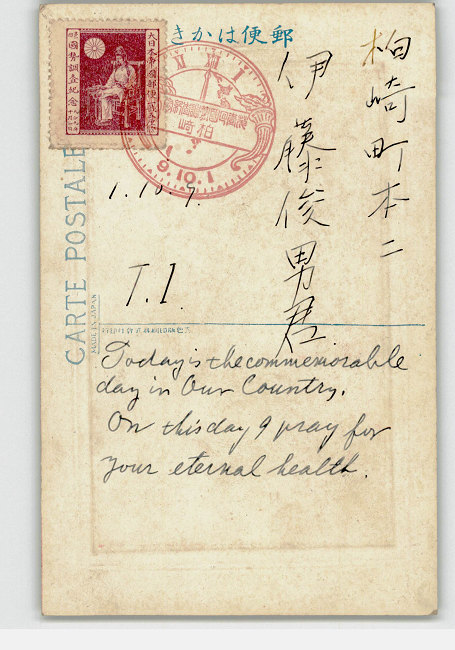 郵便はかき
大日本帝國郵便
國勢調査紀念
柏崎
9.10.1
柏崎町本二
伊藤俊男君
1.10.9.
T.I.
CARTE POSTALE
MADE IN JAPAN
Today is the commemorable
day in Our Country.
On this day I pray for
your eternal health.